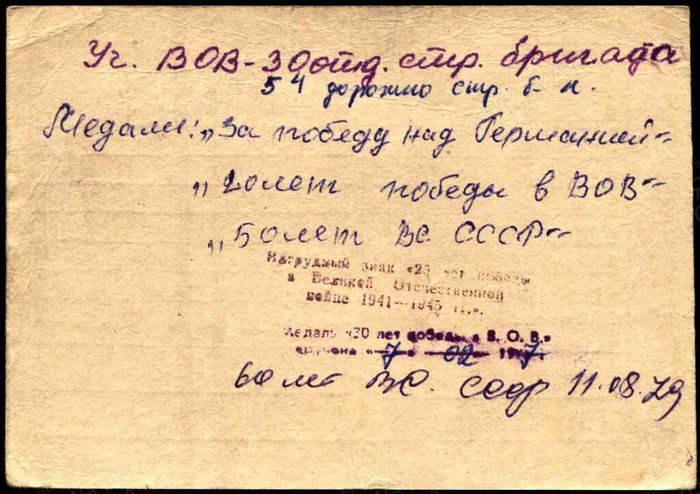 Уч. ВОВ - 30 отд. стр. бригада
54 дорожно стр. б-н.
Медали: „За победу над Германией"
„20 лет победы в ВОВ"
„50 лет ВС СССР"
Нагрудный знак «25 лет победы
в Великой Отечественной
войне 1941—1945 гг.».
Медаль «30 лет победы в В. О. В.»
вручена «7» 02 1977.
60 лет ВС. СССР 11.08.79